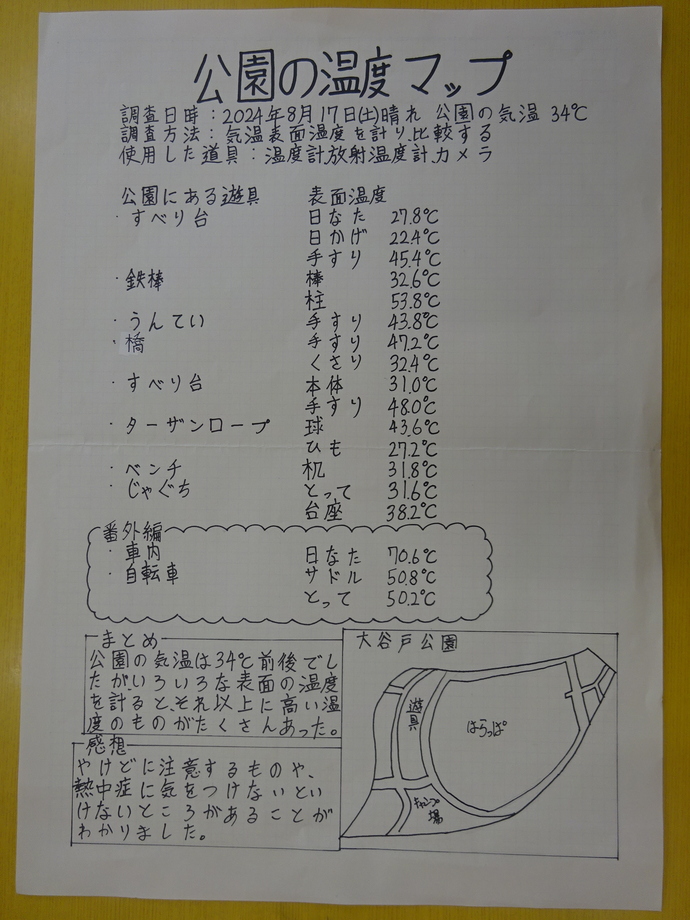 公園の温度マップ
調査日時：2024年8月17日(土)晴れ 公園の気温 34℃
調査方法：気温表面温度を計り比較する
使用した道具：温度計放射温度計カメラ
公園にある遊具 表面温度
・すべり台 日なた 27.8℃
日かげ 22.4℃
手すり 45.4℃
・鉄棒 棒 32.6℃
柱 53.8℃
・うんてい 手すり 43.8℃
・橋 手すり 47.2℃
くさり 32.4℃
・すべり台 本体 31.0℃
手すり 48.0℃
・ターザンロープ 球 43.6℃
ひも 27.2℃
・ベンチ 机 31.8℃
・じゃぐち とって 31.6℃
台座 38.2℃
番外編
・車内 日なた 70.6℃
・自転車 サドル 50.8℃
とって 50.2℃
まとめ
公園の気温は34℃前後でし
たが、いろいろな表面の温度
を計ると、それ以上に高い温
度のものがたくさんあった。
感想
やけどに注意するものや、
熱中症に気をつけないとい
けないところがあることが
わかりました。
大谷戸公園
遊具
はらっぱ
キャンプ
場